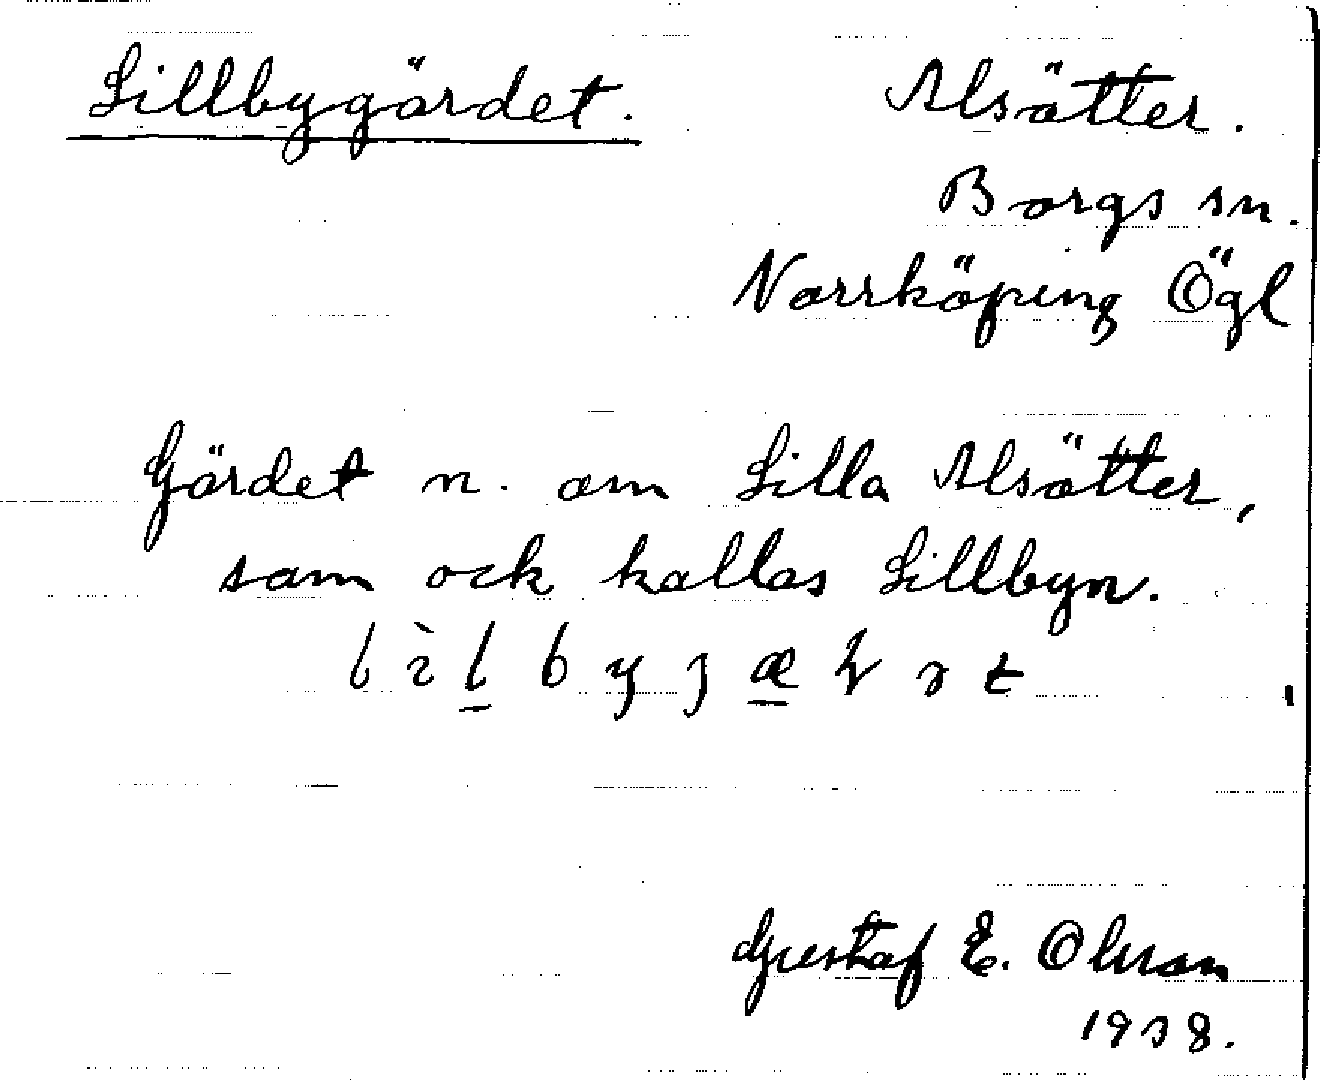 Lillbygärdet. Alsätter.
Borgs sn.
Norrköping Ögl
Gärdet n. om Lilla Alsätter,
som ock kallas Lillbyn.
Gustaf E. Olsson
1938.